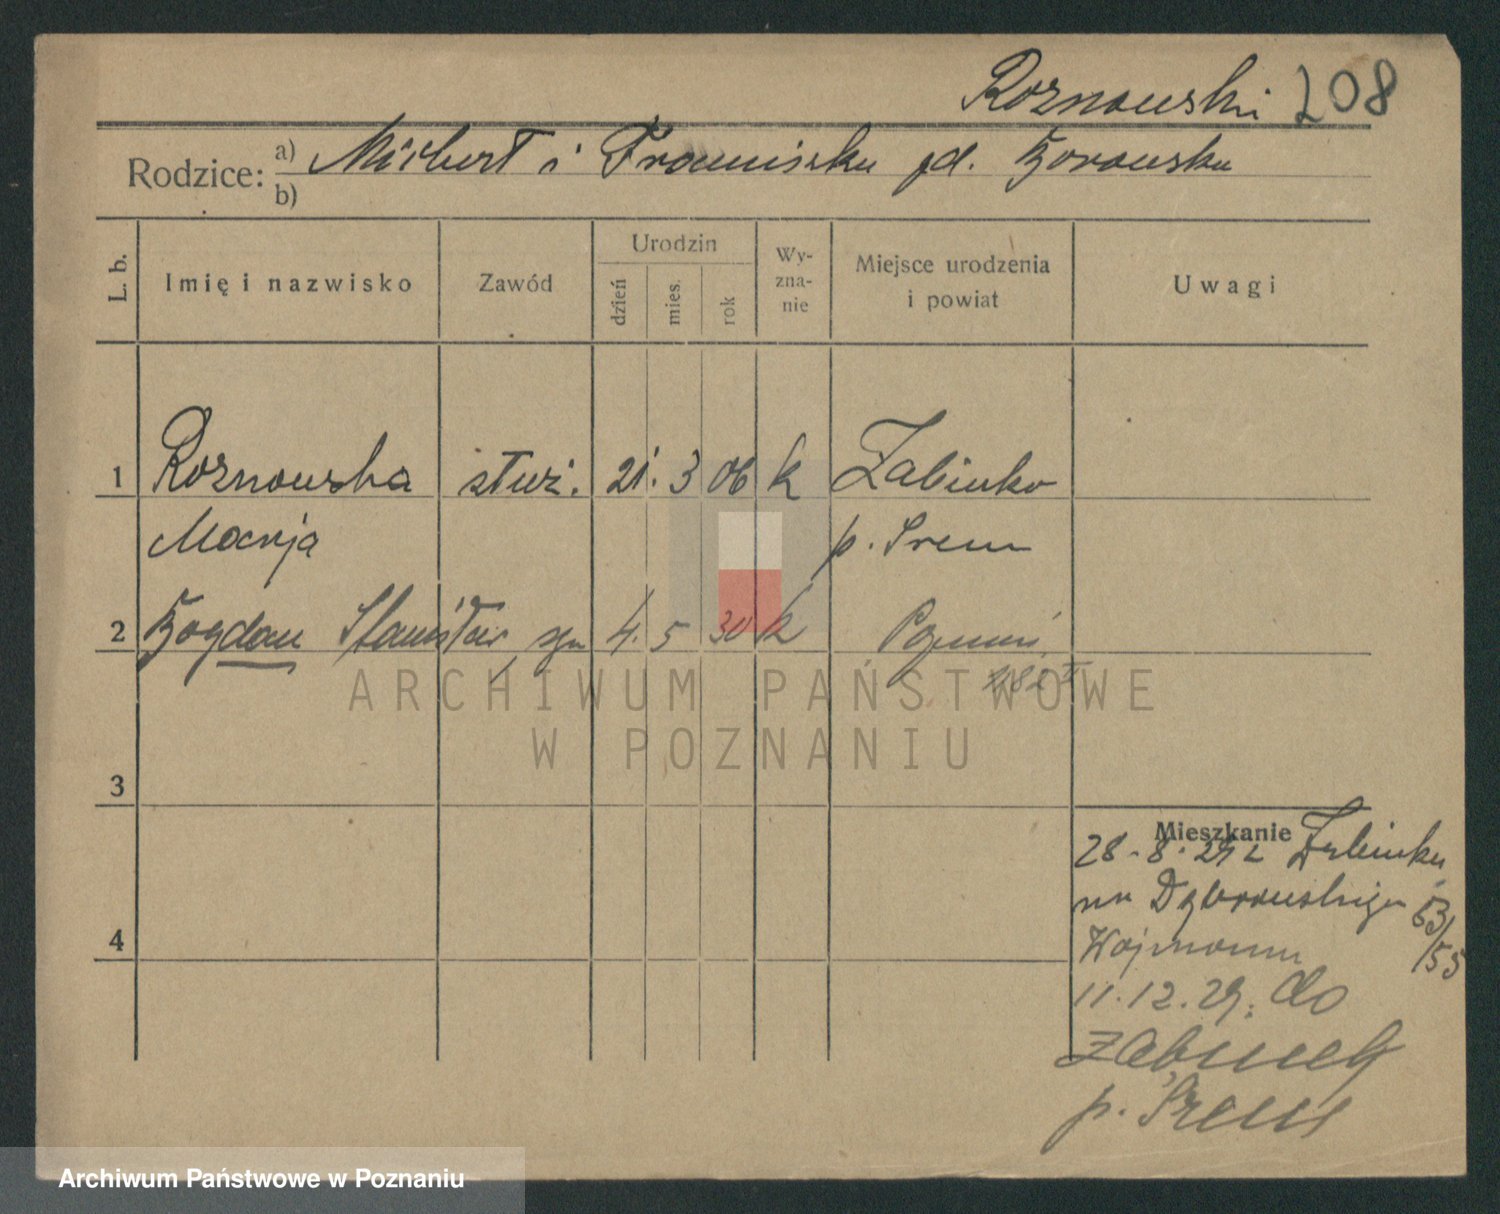 Roznowski 208
Rodzice: a) i Franciszka zd. Borowska
b)
L. b. Imię i nazwisko Zawód Urodzin dzień mies. rok Wy-zna-nie Miejsce urodzenia i powiat Uwagi
1 Roznowska służ. 21. 3 06 k Zabinko
Marja p. Srem
2 Bogdan Stanisław, syn 4. 5 30 k Poznań
3
Mieszkanie
28-8-29 z Zabinka
na Dąbrowskiego 53/55
4
11.12.29. do
p. Śrem
ARCHIWUM PAŃSTWOWE
W POZNANIU
Archiwum Państwowe w Poznaniu